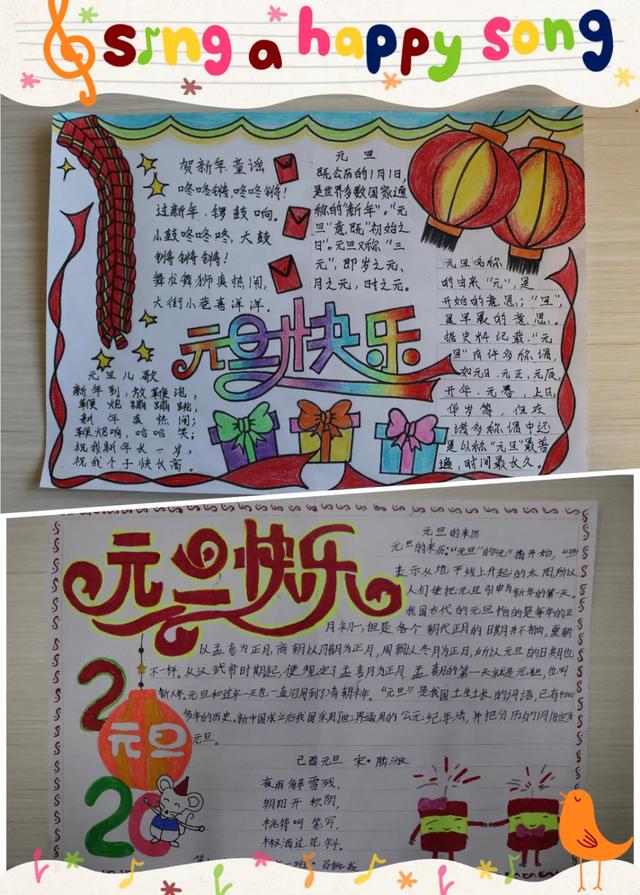 sing a happy song
贺新年童谣
咚咚锵,咚咚锵!
过新年,锣鼓响。
小鼓咚咚咚,大鼓
锵锵锵!
舞龙舞狮真热闹,
大街小巷喜洋洋。
元旦
既公历的1月1日,
是世界多数国家通
称的"新年"。"元
旦"意既"初始之
日"。元旦又称"三
元",即岁之元、
月之元,时之元。
元旦名称
的由来"元",是
开始的意思;"旦",
是早晨的意思。
据史料记载,"元
旦"有许多称谓,
如元日、元正、元辰
开年、元春、上日、
但在
诸多称谓中还
是以称"元旦"最普
遍,时间最长久。
元旦快乐
元旦儿歌
新年到,放鞭炮,
鞭炮蹦蹦跳,
新年真热闹;
鞭炮响,哈哈笑;
祝我新年长一岁,
祝我个子快长高。
元旦快乐
元旦的来历
元旦的来历:"元旦"的"元"指开始,
表示从地平线上升起的太阳,所以
人们便把元旦引申为新年的第一天。
我国古代的元旦指的是每年的正
月初一,但是各个朝代正月的日期并不相同,夏朝
以孟喜为正月,商朝以腊月为正月,周朝以冬月为正月,所以元旦的日期也
不一样。从汉武帝时期起,便规定了孟喜月为正月,孟喜月的第一天就是元旦,也叫
新年。元旦和过年一天也一直沿用到了清朝末年。"元旦"是我国土生土长的词语,已有4000
多年的历史。新中国成立后我国采用了世界通用的公元纪年法,并把公历的1月1日定为
元旦。
2020
元旦
己酉元旦 宋·陈淑
夜雨解雪残,
朝阳开积阴,
桃符呵笔写,
椒酒过花斜。